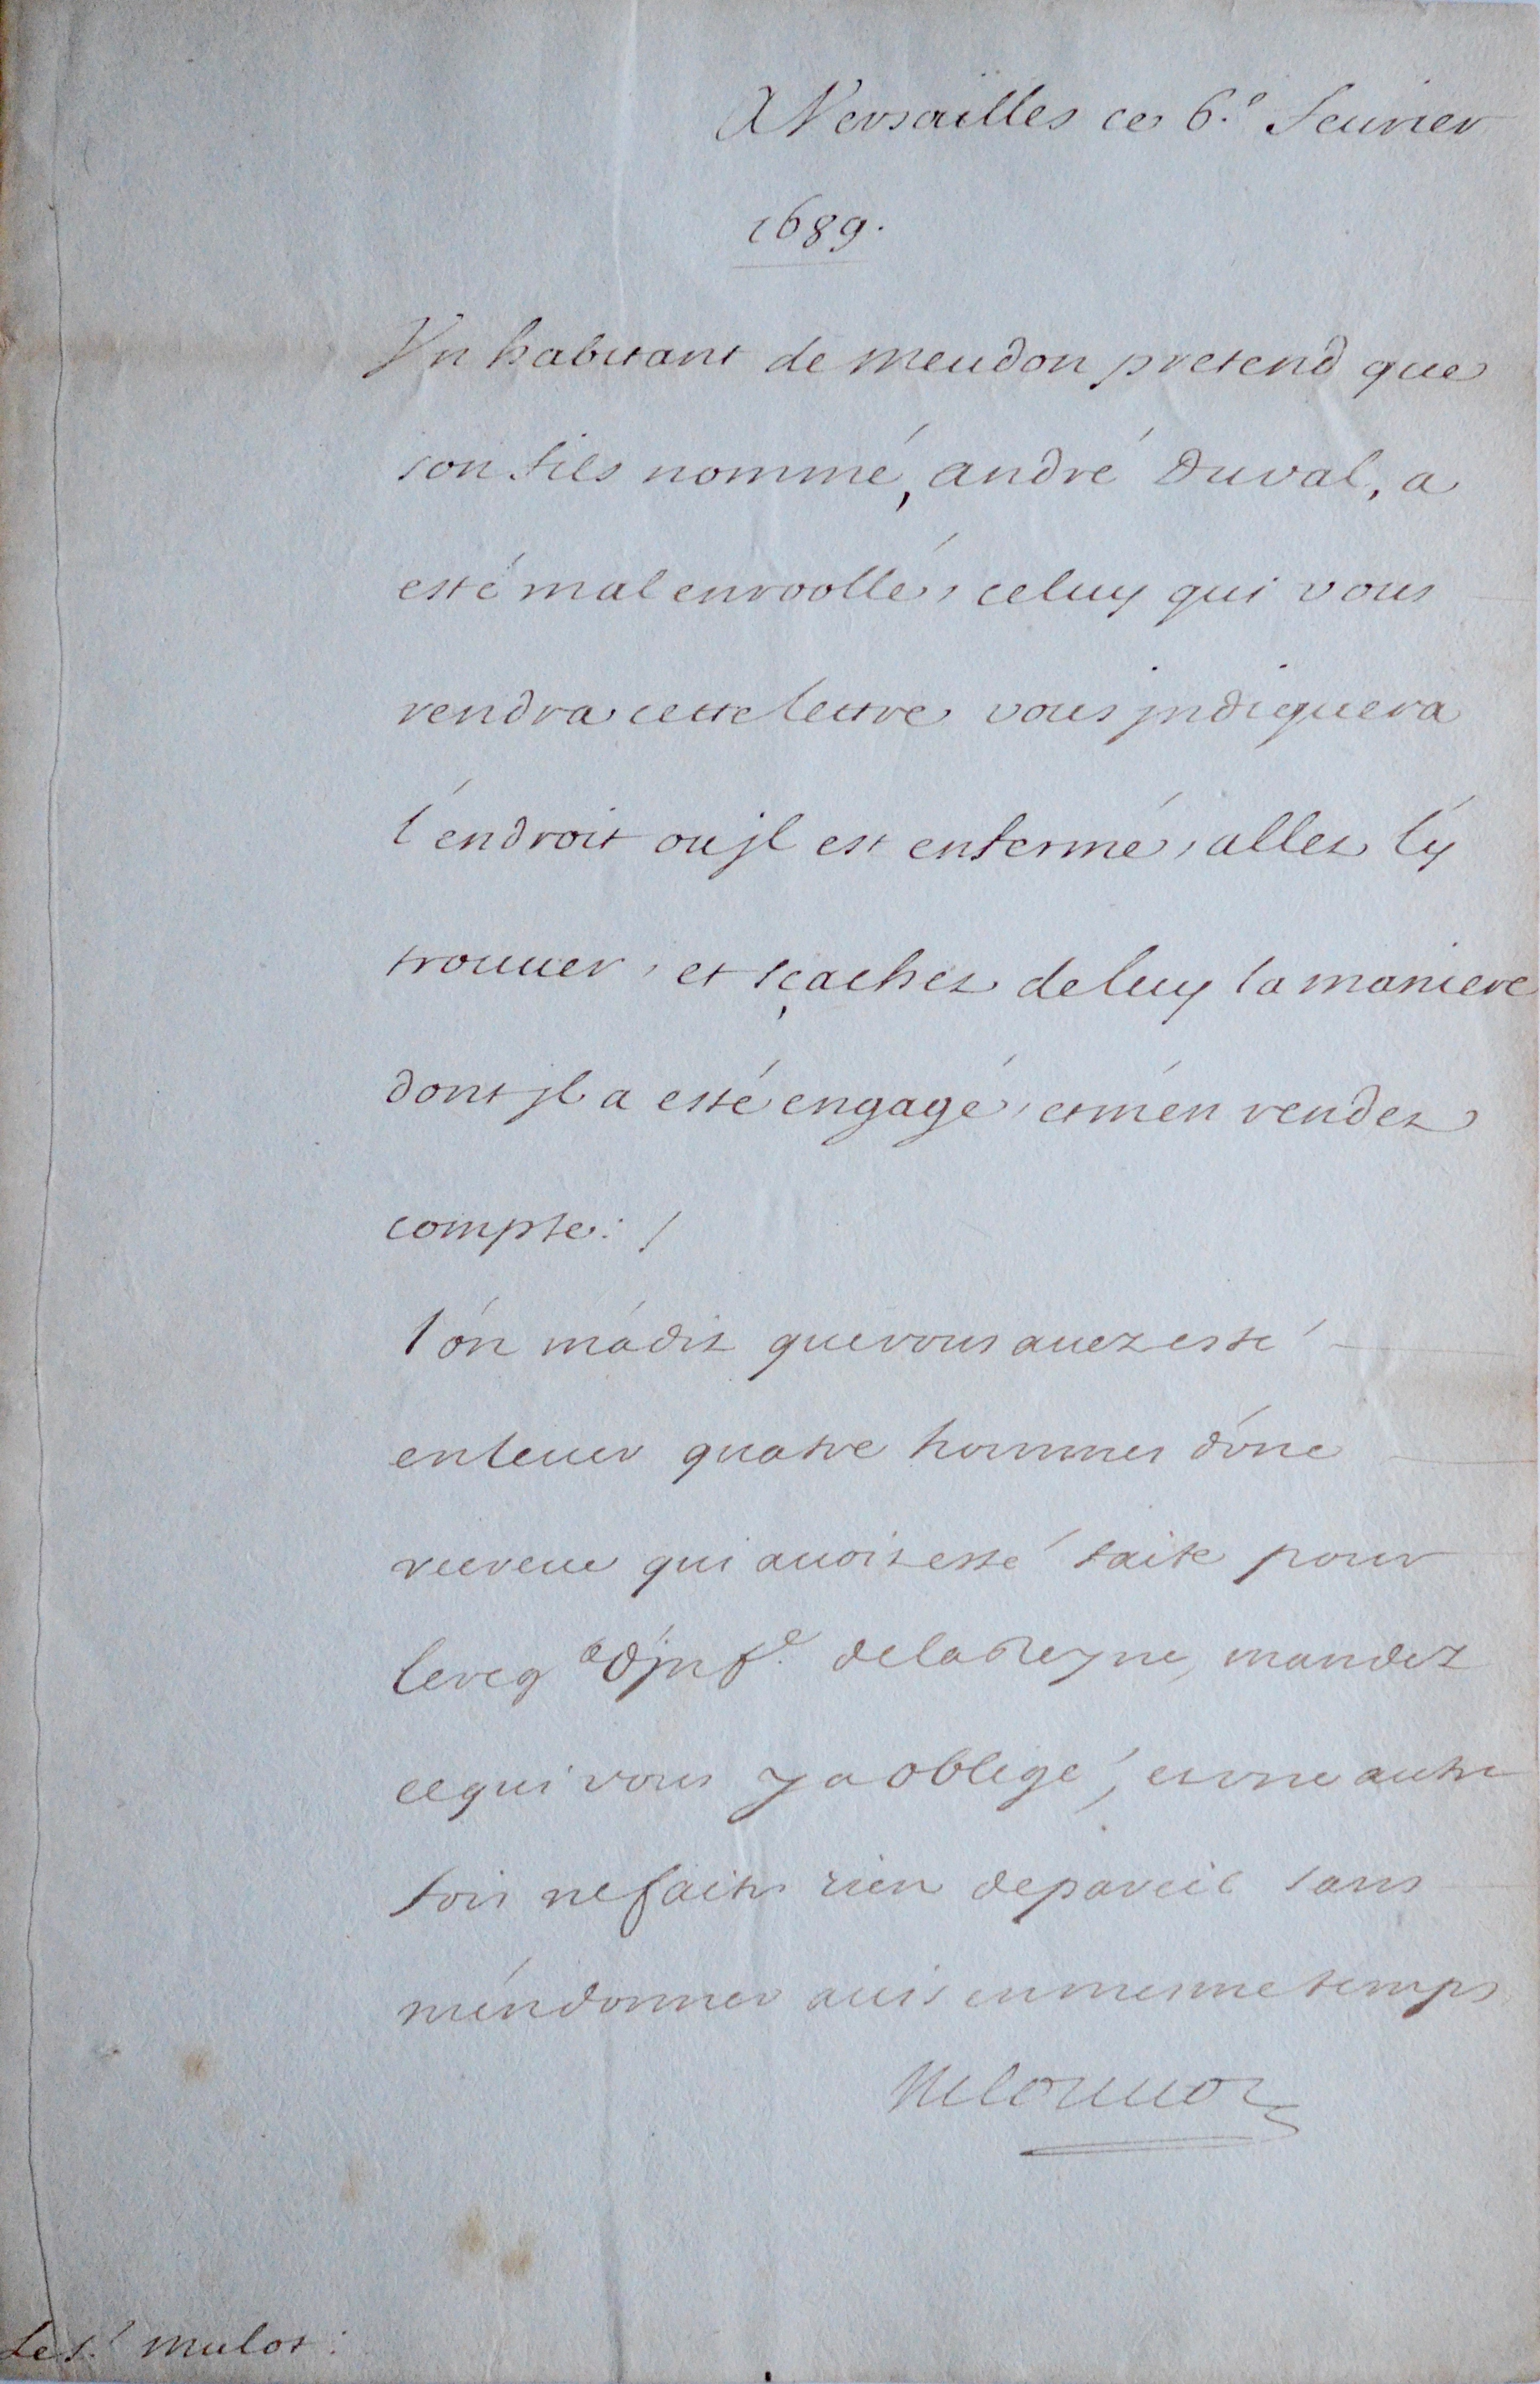 A Versailles ce 6.e feurier
1689.
Vn habitant de meudon pretend que
son fils nommé, andré Duval, a
esté mal enroollé, celuy qui vous
rendra cette lettre vous jndiquera
l'endroit ou jl est enfermé, allez l'y
trouuer, et sçachez de luy la maniere
dont jl a esté engagé, et m'en rendez
compte: /
l'on m'a dit que vous auez esté
enleuer quatre hommes d'vne
recreue qui auoit esté faite pour
le reg d'jnf.e de la Reyne, mandez
ce qui vous y a obligé, et vne autre
fois ne faites rien de pareil sans
m'en donner auis en mesme temps
Le s.r mulot: